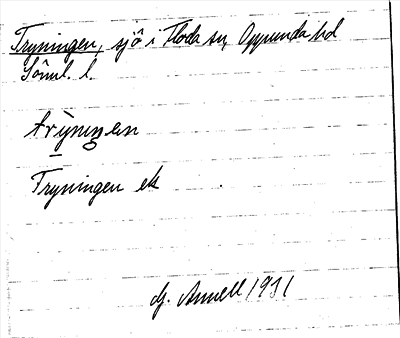 Tryningen, sjö i Floda sn, Oppunda hd
Söml. l.
trỳnιŋen
Tryningen ek
G. Annell 1931